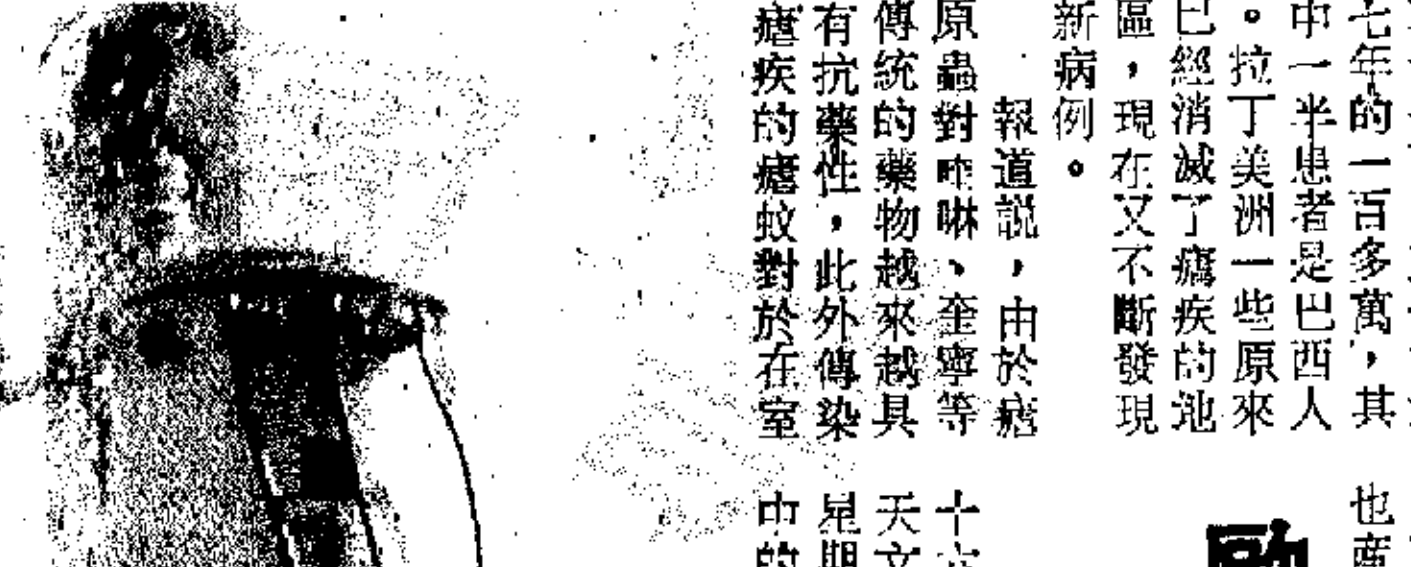 七年的一百多萬，其
中一半患者是巴西人
。拉丁美洲一些原來
已經消滅了瘧疾的地
區，現在又不斷發現
新病例。
報道說，由於瘧
原蟲對喹啉、奎寧等
傳統的藥物越來越具
有抗藥性，此外傳染
瘧疾的瘧蚊對於在室
也產
歐
十
天文
星期
中的